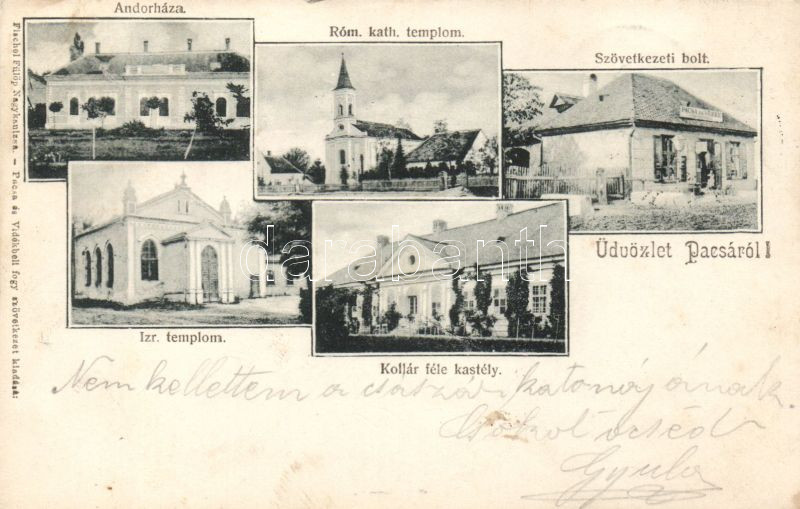 Andorháza.
Róm. kath. templom.
Szövetkezeti bolt.
Izr. templom.
Kollár féle kastély.
Üdvözlet Pacsáról!
Fischel Fülöp Nagykanizsa. – Pacsa és Vidékbeli fogy szövetkezet kiadása.
darabanth
Nem kellettem a császár katonájának.
Csókol öcséd
Gyula